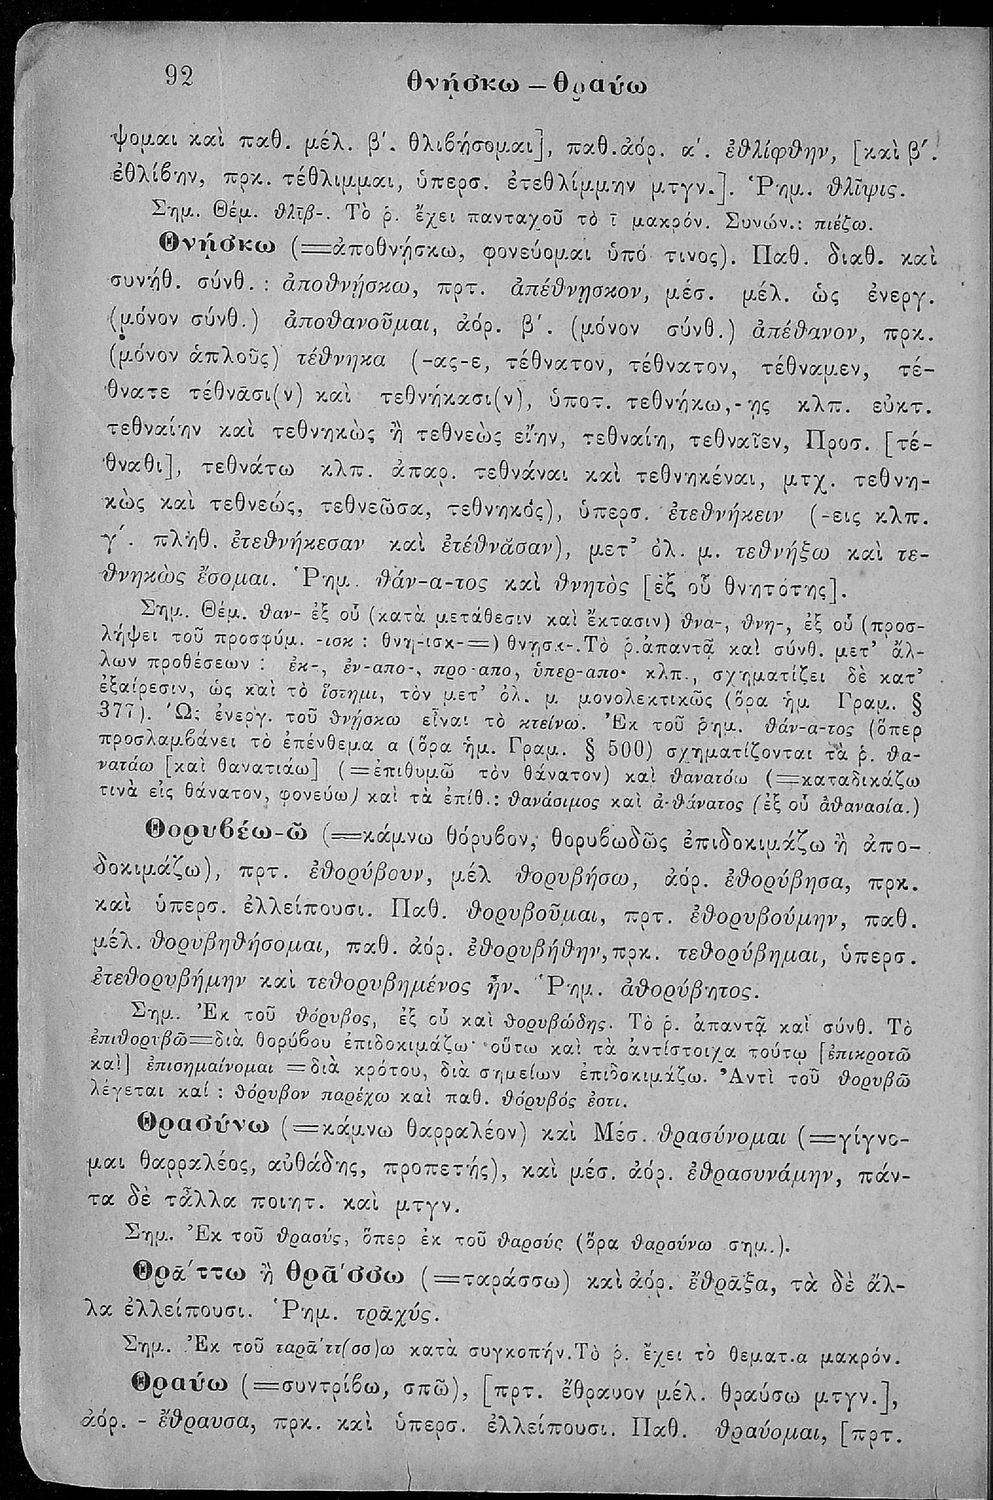 92
θνήσκω — θραύω
ψομαι καὶ παθ. μέλ. β΄. θλιβήσομαι], παθ.ἀόρ. α΄. ἐθλίφθην, [καὶ β΄.
ἐθλίβην, πρκ. τέθλιμμαι, ὑπερσ. ἐτεθλίμμην μτγν.]. Ῥημ. θλῖψις.
Σημ. Θέμ. θλῑβ-. Τὸ ῥ. ἔχει πανταχοῦ τὸ ῑ μακρόν. Συνών.: πιέζω.
Θνήσκω (=ἀποθνήσκω, φονεύομαι ὑπό τινος). Παθ. διαθ. καὶ
συνήθ. σύνθ. : ἀποθνήσκω, πρτ. ἀπέθνησκον, μέσ. μέλ. ὡς ἐνεργ.
(μόνον σύνθ.) ἀποθανοῦμαι, ἀόρ. β΄. (μόνον σύνθ.) ἀπέθανον, πρκ.
(μόνον ἁπλοῦς) τέθνηκα (-ας-ε, τέθνατον, τέθνατον, τέθναμεν, τέ-
θνατε τέθνᾶσι(ν) καὶ τεθνήκασι(ν), ὑποτ. τεθνήκω,-ῃς κλπ. εὐκτ.
τεθναίην καὶ τεθνηκὼς ἢ τεθνεὼς εἴην, τεθναίη, τεθναῖεν, Προσ. [τέ-
θναθι], τεθνάτω κλπ. ἀπαρ. τεθνάναι καὶ τεθνηκέναι, μτχ. τεθνη-
κὼς καὶ τεθνεώς, τεθνεῶσα, τεθνηκός), ὑπερσ. ἐτεθνήκειν (-εις κλπ.
γ΄. πληθ. ἐτεθνήκεσαν καὶ ἐτέθνᾰσαν), μετ' ὀλ. μ. τεθνήξω καὶ τε-
θνηκὼς ἔσομαι. Ῥημ. θάν-α-τος καὶ θνητὸς [ἐξ οὗ θνητότης].
Σημ. Θέμ. θαν- ἐξ οὗ (κατὰ μετάθεσιν καὶ ἔκτασιν) θνα-, θνη-, ἐξ οὗ (προσ-
λήψει τοῦ προσφύμ. -ισκ : θνη-ισκ-=) θνησκ-.Τὸ ῥ.ἀπαντᾷ καὶ σύνθ. μετ' ἄλ-
λων προθέσεων : ἐκ-, ἐν-απο-, προ-απο, ὑπερ-απο· κλπ., σχηματίζει δὲ κατ'
ἐξαίρεσιν, ὡς καὶ τὸ ἵστημι, τὸν μετ' ὀλ. μ. μονολεκτικῶς (ὅρα ἡμ. Γραμ. §
377). Ὡς ἐνεργ. τοῦ θνήσκω εἶναι τὸ κτείνω. Ἐκ τοῦ ῥημ. θάν-α-τος (ὅπερ
προσλαμβάνει τὸ ἐπένθεμα α (ὅρα ἡμ. Γραμ. § 500) σχηματίζονται τὰ ῥ. θα-
νατάω [καὶ θανατιάω] (=ἐπιθυμῶ τὸν θάνατον) καὶ θανατόω (=καταδικάζω
τινὰ εἰς θάνατον, φονεύω) καὶ τὰ ἐπίθ.: θανάσιμος καὶ ἀ-θάνατος (ἐξ οὗ ἀθανασία.)
Θορυβέω-ῶ (=κάμνω θόρυβον, θορυβωδῶς ἐπιδοκιμάζω ἢ ἀπο-
δοκιμάζω), πρτ. ἐθορύβουν, μέλ θορυβήσω, ἀόρ. ἐθορύβησα, πρκ.
καὶ ὑπερσ. ἐλλείπουσι. Παθ. θορυβοῦμαι, πρτ. ἐθορυβούμην, παθ.
μέλ. θορυβηθήσομαι, παθ. ἀόρ. ἐθορυβήθην,πρκ. τεθορύβημαι, ὑπερσ.
ἐτεθορυβήμην καὶ τεθορυβημένος ἦν. Ῥημ. ἀθορύβητος.
Σημ. Ἐκ τοῦ θόρυβος, ἐξ οὗ καὶ θορυβώδης. Τὸ ῥ. ἀπαντᾷ καὶ σύνθ. Τὸ
ἐπιθορυβῶ=διὰ θορύβου ἐπιδοκιμάζω· οὕτω καὶ τὰ ἀντίστοιχα τούτῳ [ἐπικροτῶ
καὶ] ἐπισημαίνομαι =διὰ κρότου, διὰ σημείων ἐπιδοκιμάζω. Ἀντὶ τοῦ θορυβῶ
λέγεται καί : θόρυβον παρέχω καὶ παθ. θόρυβός ἐστι.
Θρασύνω (=κάμνω θαρραλέον) καὶ Μέσ. θρασύνομαι (=γίγνο-
μαι θαρραλέος, αὐθάδης, προπετής), καὶ μέσ. ἀόρ. ἐθρασυνάμην, πάν-
τα δὲ τἆλλα ποιητ. καὶ μτγν.
Σημ. Ἐκ τοῦ θρασύς, ὅπερ ἐκ τοῦ θαρσύς (ὅρα θαρσύνω σημ.).
Θρᾱ́ττω ἢ θρᾱ́σσω (=ταράσσω) καὶ ἀόρ. ἔθρᾱξα, τὰ δὲ ἄλ-
λα ἐλλείπουσι. Ῥημ. τρᾱχύς.
Σημ. Ἐκ τοῦ ταρᾱ́ττ(σσ)ω κατὰ συγκοπήν.Τὸ ῥ. ἔχει τὸ θεματ.α μακρόν.
Θραύω (=συντρίβω, σπῶ), [πρτ. ἔθραυον μέλ. θραύσω μτγν.],
ἀόρ. - ἔθραυσα, πρκ. καὶ ὑπερσ. ἐλλείπουσι. Παθ. θραύομαι, [πρτ.